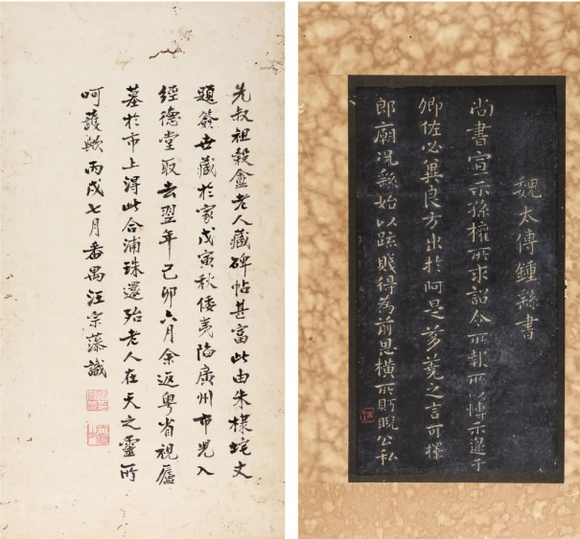 魏太傅鍾繇書
尚書宣示孫權所求詔令所報所以博示逮于
卿佐必冀良方出於阿是芻蕘之言可擇
郎廟況繇始以疏賤得為前恩橫所盻睨公私
先叔祖穀盦老人藏碑帖甚富此由朱棣垞丈
題簽世藏於家戊寅秋倭夷陷廣州市兇入
經德堂取去翌年己卯六月余返粵省視廬
墓於市上得此合浦珠還殆老人在天之靈所
呵護歟丙戌七月番禺汪宗藻識